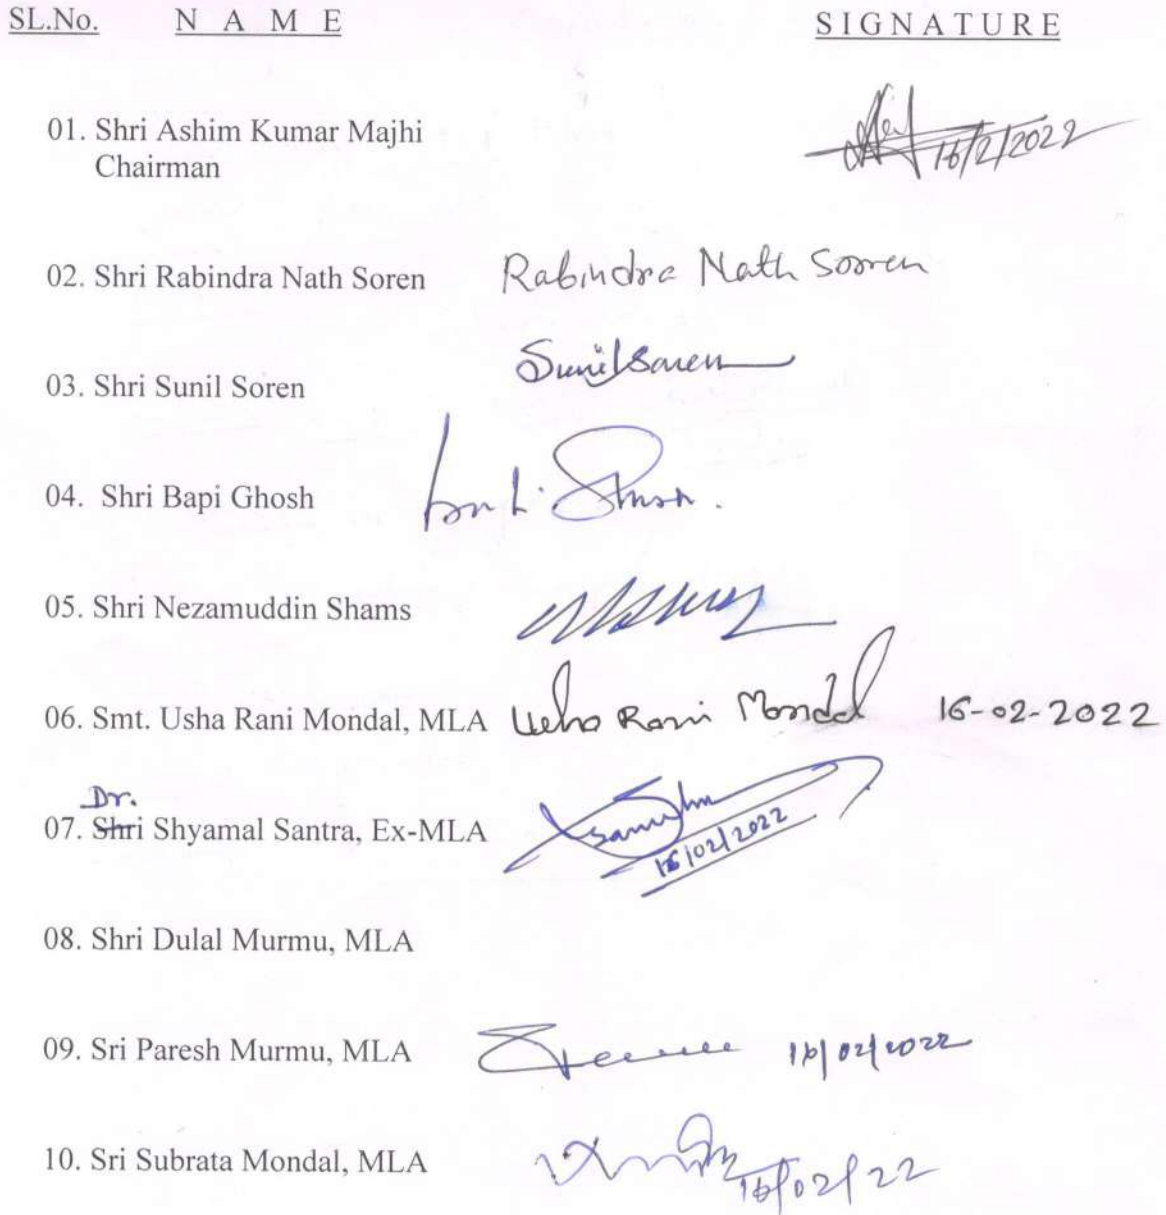 SL.No. N A M E SIGNATURE
01. Shri Ashim Kumar Majhi
Chairman
16/2/2022
02. Shri Rabindra Nath Soren Rabindra Nath Soren
03. Shri Sunil Soren Sunil Soren
04. Shri Bapi Ghosh
05. Shri Nezamuddin Shams
06. Smt. Usha Rani Mondal, MLA Usha Rani Mondal 16-02-2022
Dr.
07. Shri Shyamal Santra, Ex-MLA
16/02/2022
08. Shri Dulal Murmu, MLA
09. Sri Paresh Murmu, MLA 16/02/2022
10. Sri Subrata Mondal, MLA 16/02/22